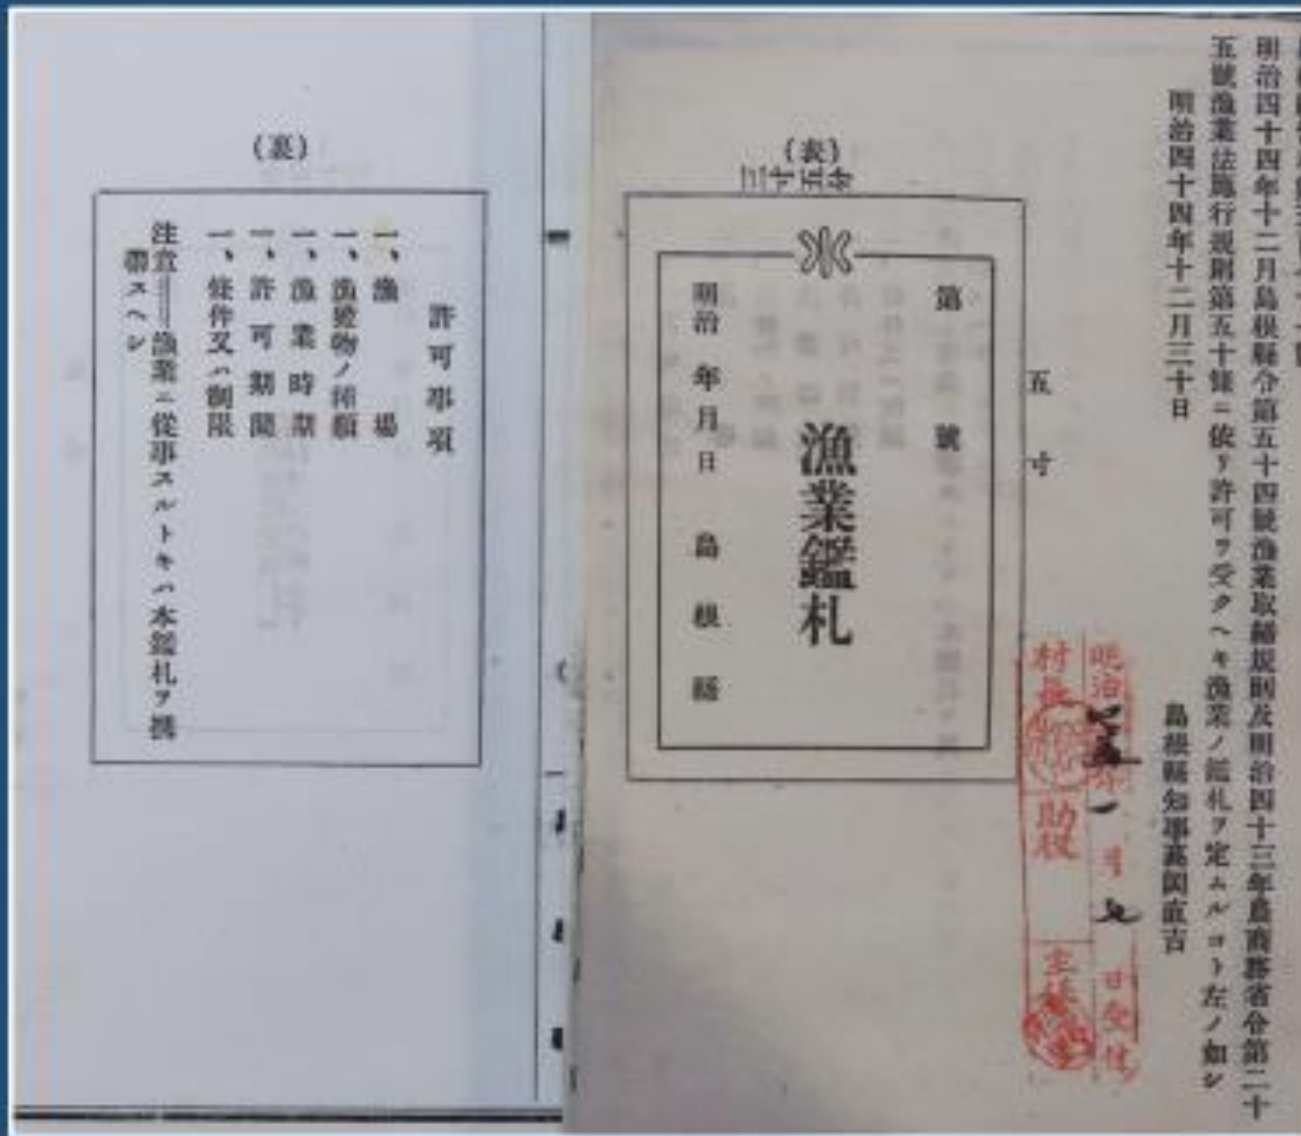 明治四十四年十二月島根縣令第五十四號漁業取締規則及明治四十三年農商務省令第二十
五號漁業法施行規則第五十條ニ依リ許可ヲ受クヘキ漁業ノ鑑札ヲ定ムルコト左ノ如シ
明治四十四年十二月三十日
島根縣知事高岡直吉
明治 年一月七日受付
村長
助役
主
(表)
三寸五分
五寸
第 號
漁業鑑札
明治 年月日 島根縣
(裏)
許可事項
一、漁場
一、漁獲物ノ種類
一、漁業時期
一、許可期間
一、條件又ハ制限
注意──漁業ニ從事スルトキハ本鑑札ヲ携
帶スヘシ